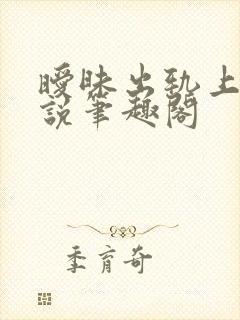 曖昧出轨上
説筆趣閣
季育奇